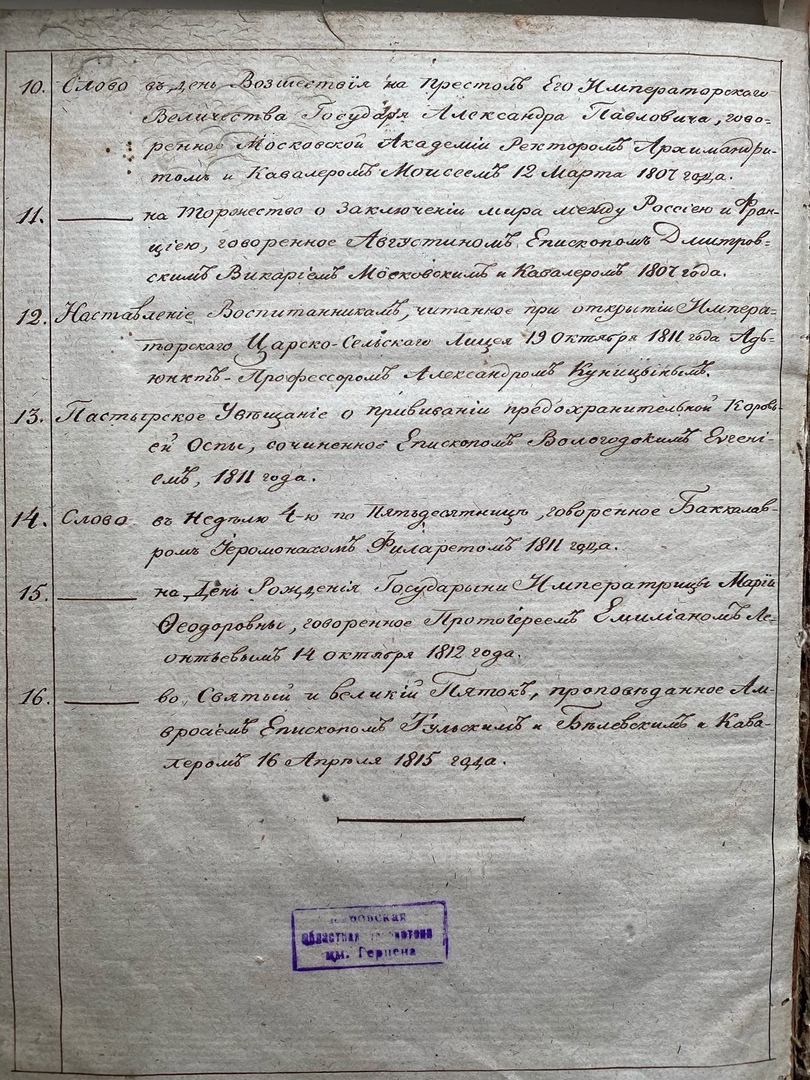 10. Слово въ день Возшествія на престолъ Его Императорскаго
Величества Государя Александра Павловича, гово=
ренное Московской Академіи Ректоромъ Архимандри=
томъ и Кавалеромъ Моисеемъ 12 Марта 1807 года.
11. ——— на торжество о заключеніи мира между Россіею и Фран=
ціею, говоренное Августиномъ, Епископомъ Дмитров=
скимъ Викаріемъ Московскимъ и Кавалеромъ 1807 года.
12. Наставленіе Воспитанникамъ, читанное при открытіи Импера=
торскаго Царско-Сельскаго Лицея 19 Октября 1811 года Адъ=
юнктъ-Профессоромъ Александромъ Куницынымъ.
13. Пастырское Увѣщаніе о прививаніи предохранительной Коровь=
ей Оспы, сочиненное Епископомъ Вологодскимъ Евгені=
емъ, 1811 года.
14. Слово въ Недѣлю 4-ю по Пятьдесятницѣ, говоренное Баккалав=
ромъ Іеромонахомъ Филаретомъ 1811 года.
15. ——— на День Рожденія Государыни Императрицы Маріи
Ѳеодоровны, говоренное Протоіереемъ Емиліаномъ Ле=
онтьевымъ 14 октября 1812 года.
16. ——— во Святый и великій Пятокъ, проповѣданное Ам=
вросіемъ Епископомъ Тульскимъ и Бѣлевскимъ и Кава=
леромъ 16 Апрѣля 1815 года.
областная
им. Герцена